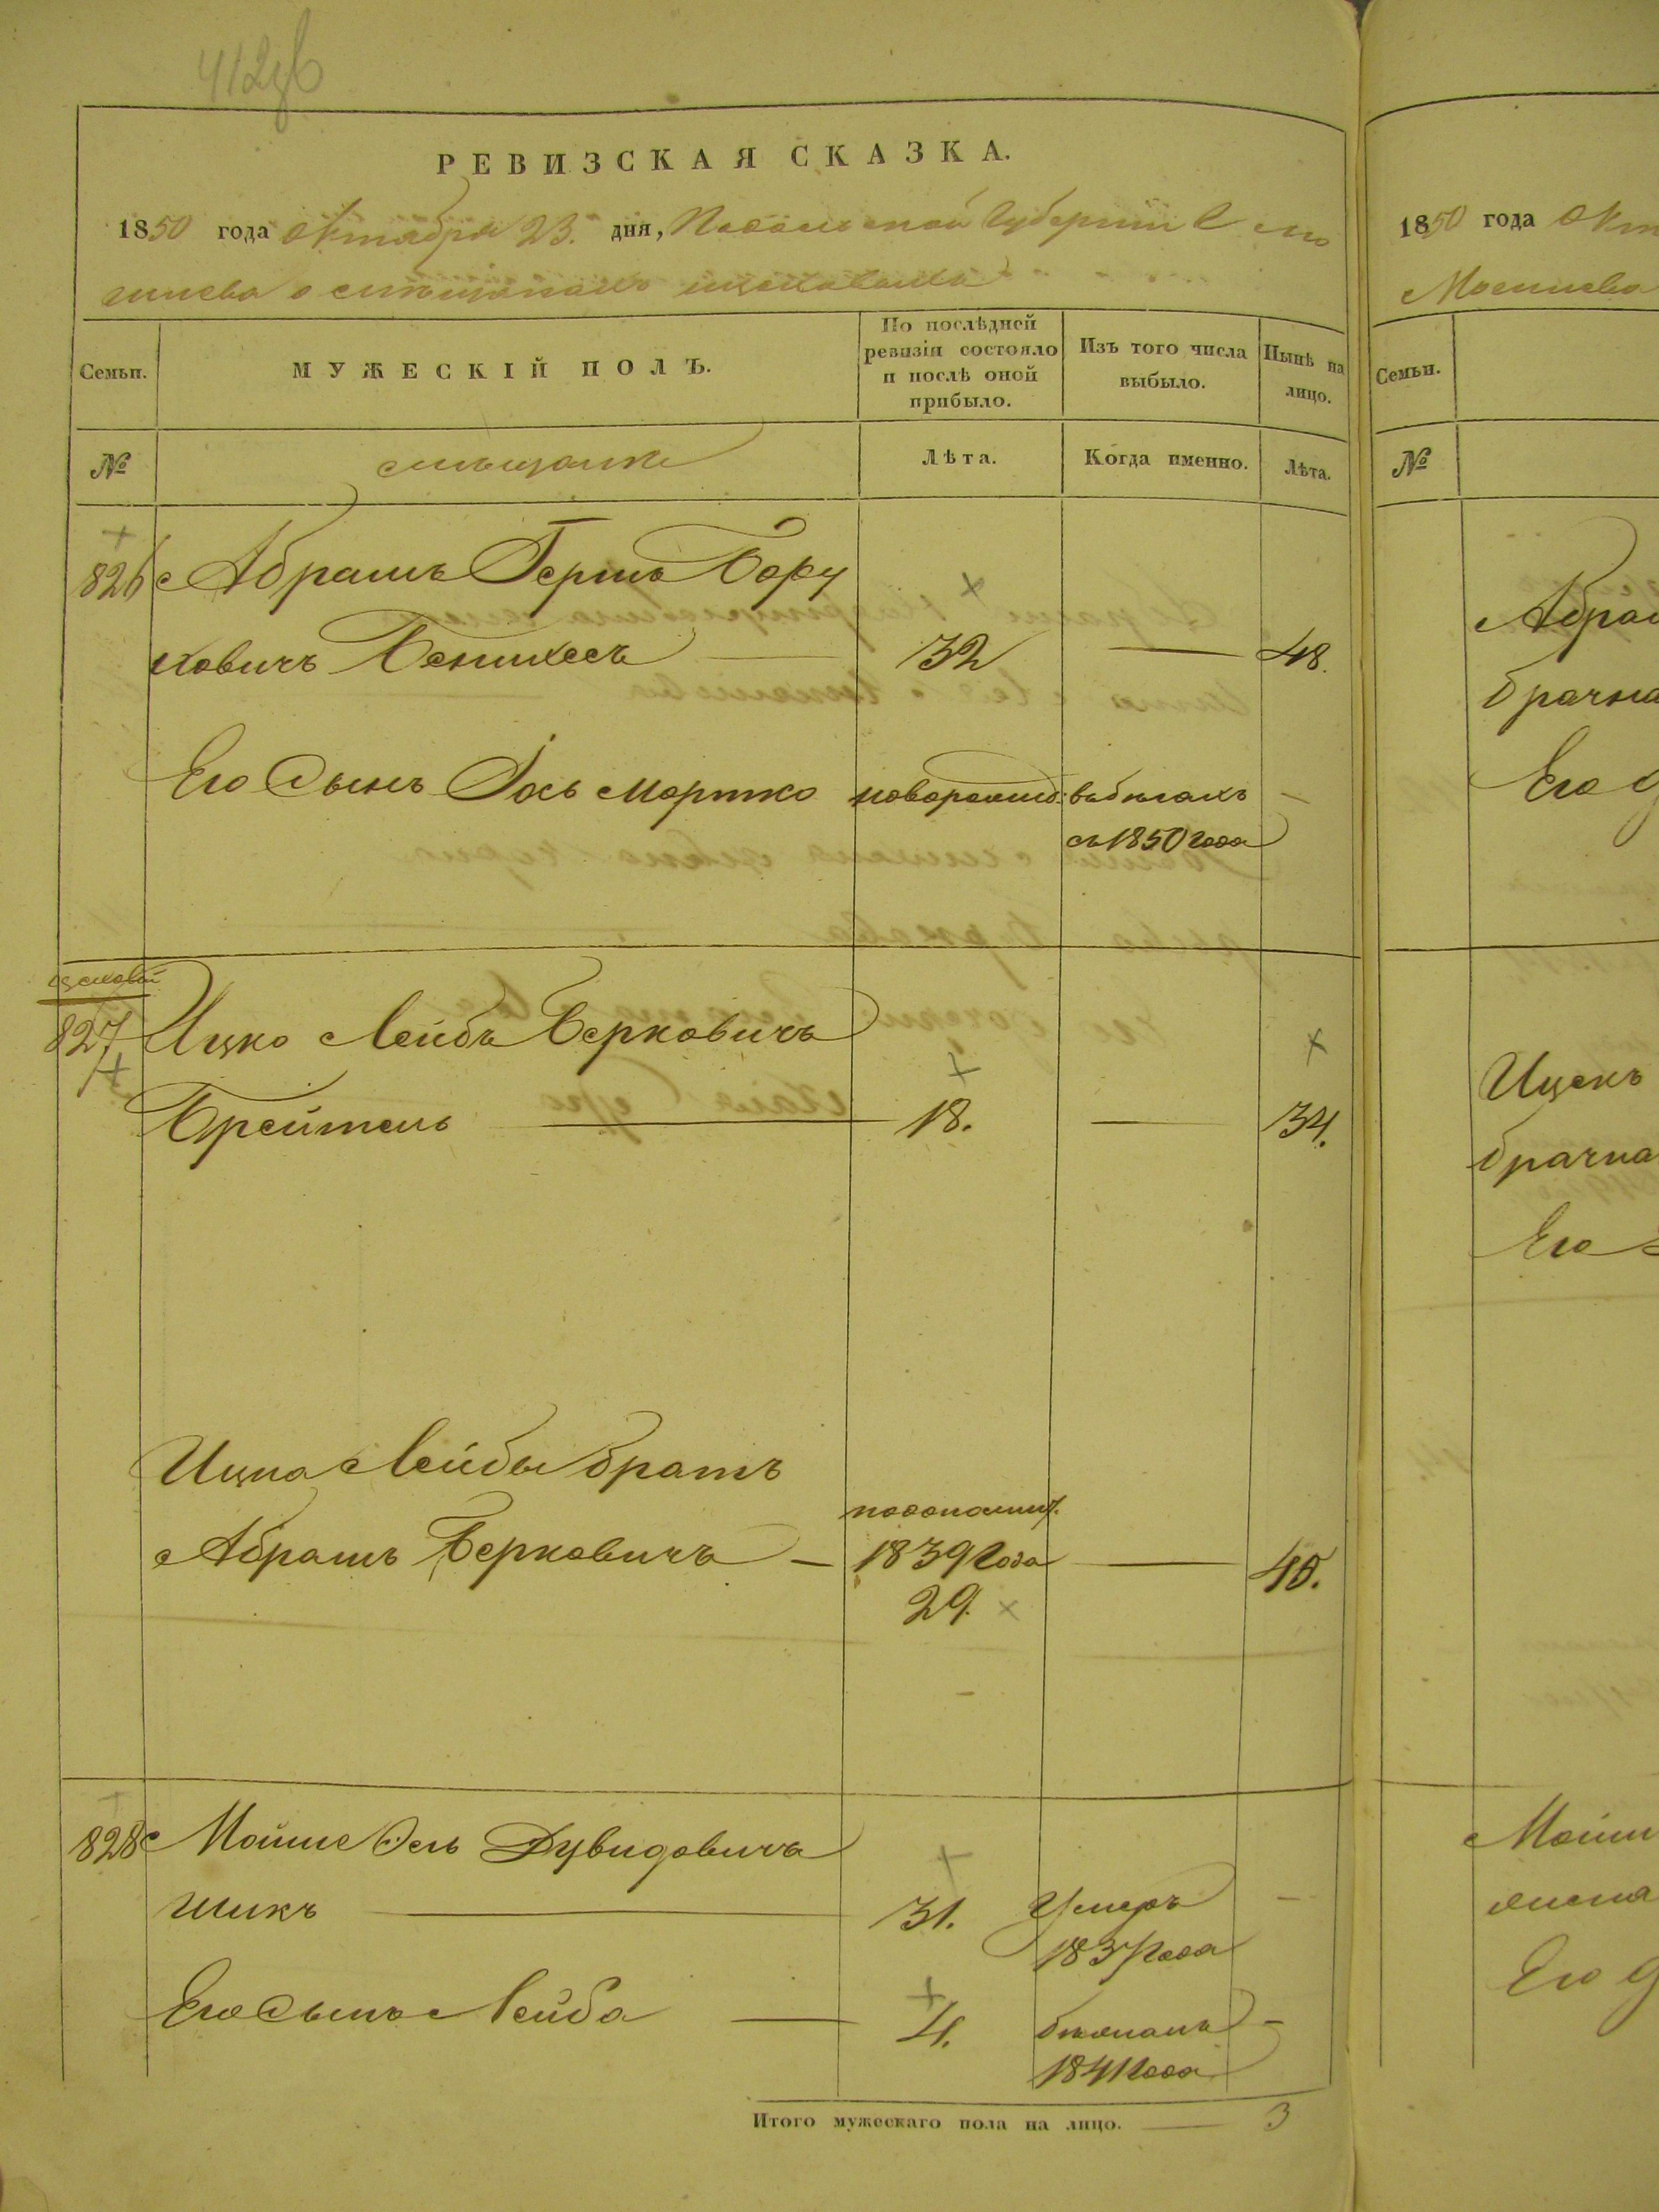 РЕВИЗСКАЯ СКАЗКА.
1850 года Октября 23. дня, Подольской Губернiи
Семьи.
МУЖЕСКІЙ ПОЛЪ.
По послѣдней ревизіи состояло и послѣ оной прибыло.
Изъ того числа выбыло.
Нынѣ на лицо.
№
мѣщане
Лѣта.
Когда именно.
Лѣта.
826 Абрамъ Гершъ Бору
ховичъ 32 — 48.
Его Сынъ Іось Мортко новорожд: въ бѣгахъ —
съ 1850 года
827 Ицко Лейбъ Берковичъ
Брейтель 18. — 34.
Ицка Лейбы братъ
Абрамъ Берковичъ — 1839 года — 40.
29.
828 Мойше Дувидовичъ
Шикъ 31. Умеръ —
1837 года
Его Сынъ Лейба 4. бѣжалъ —
1841 года
Итого мужескаго пола на лицо. 3
1850 года Окт
Семьи.
№
Абрам
брачна
Его
Ицекъ
брачна
Его
Мойш
Его